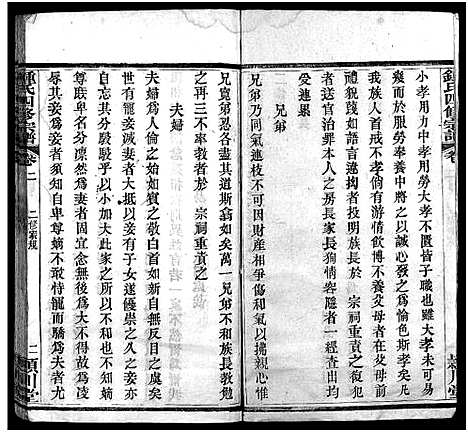 鍾氏四修宗譜
卷二
小孝用力中孝用勞大孝不匱皆子職也雖大孝未可易
幾而於服勞奉養中將之以誠心發之爲愉色斯孝矣凡
我族人首戒不孝倘有游情飲博不顧父母之養及奉養
禮貌或缺如語言違拗者投明族長於 宗祠重責之甚
者送官治罪本人之房長家長狥情容隱者一經查出均
愛連累
兄弟
兄弟乃同氣連枝不可因財產相爭傷和氣以擄親心惟
兄寬弟忍各盡其道斯翕如矣萬一兄弟不和族長教勉
之再三不率教者於 宗祠責之
夫婦
夫婦爲人倫之始相敬如賓之敬白首如新之反目戾矣
世有寵妾滅妻者大抵以妾有子女遂優崇之久之妾亦
自忘其分駸駸乎以小加大矣不知妾卽有子女與嫡並
尊朕卑名分凜然爲妻者固宜念無後爲大不得以故凌
辱其妾爲妾者須知自卑尊嫡不敢恃寵而驕爲夫者尤
鍾氏四修宗譜
卷二
二修家規
二
潁川堂